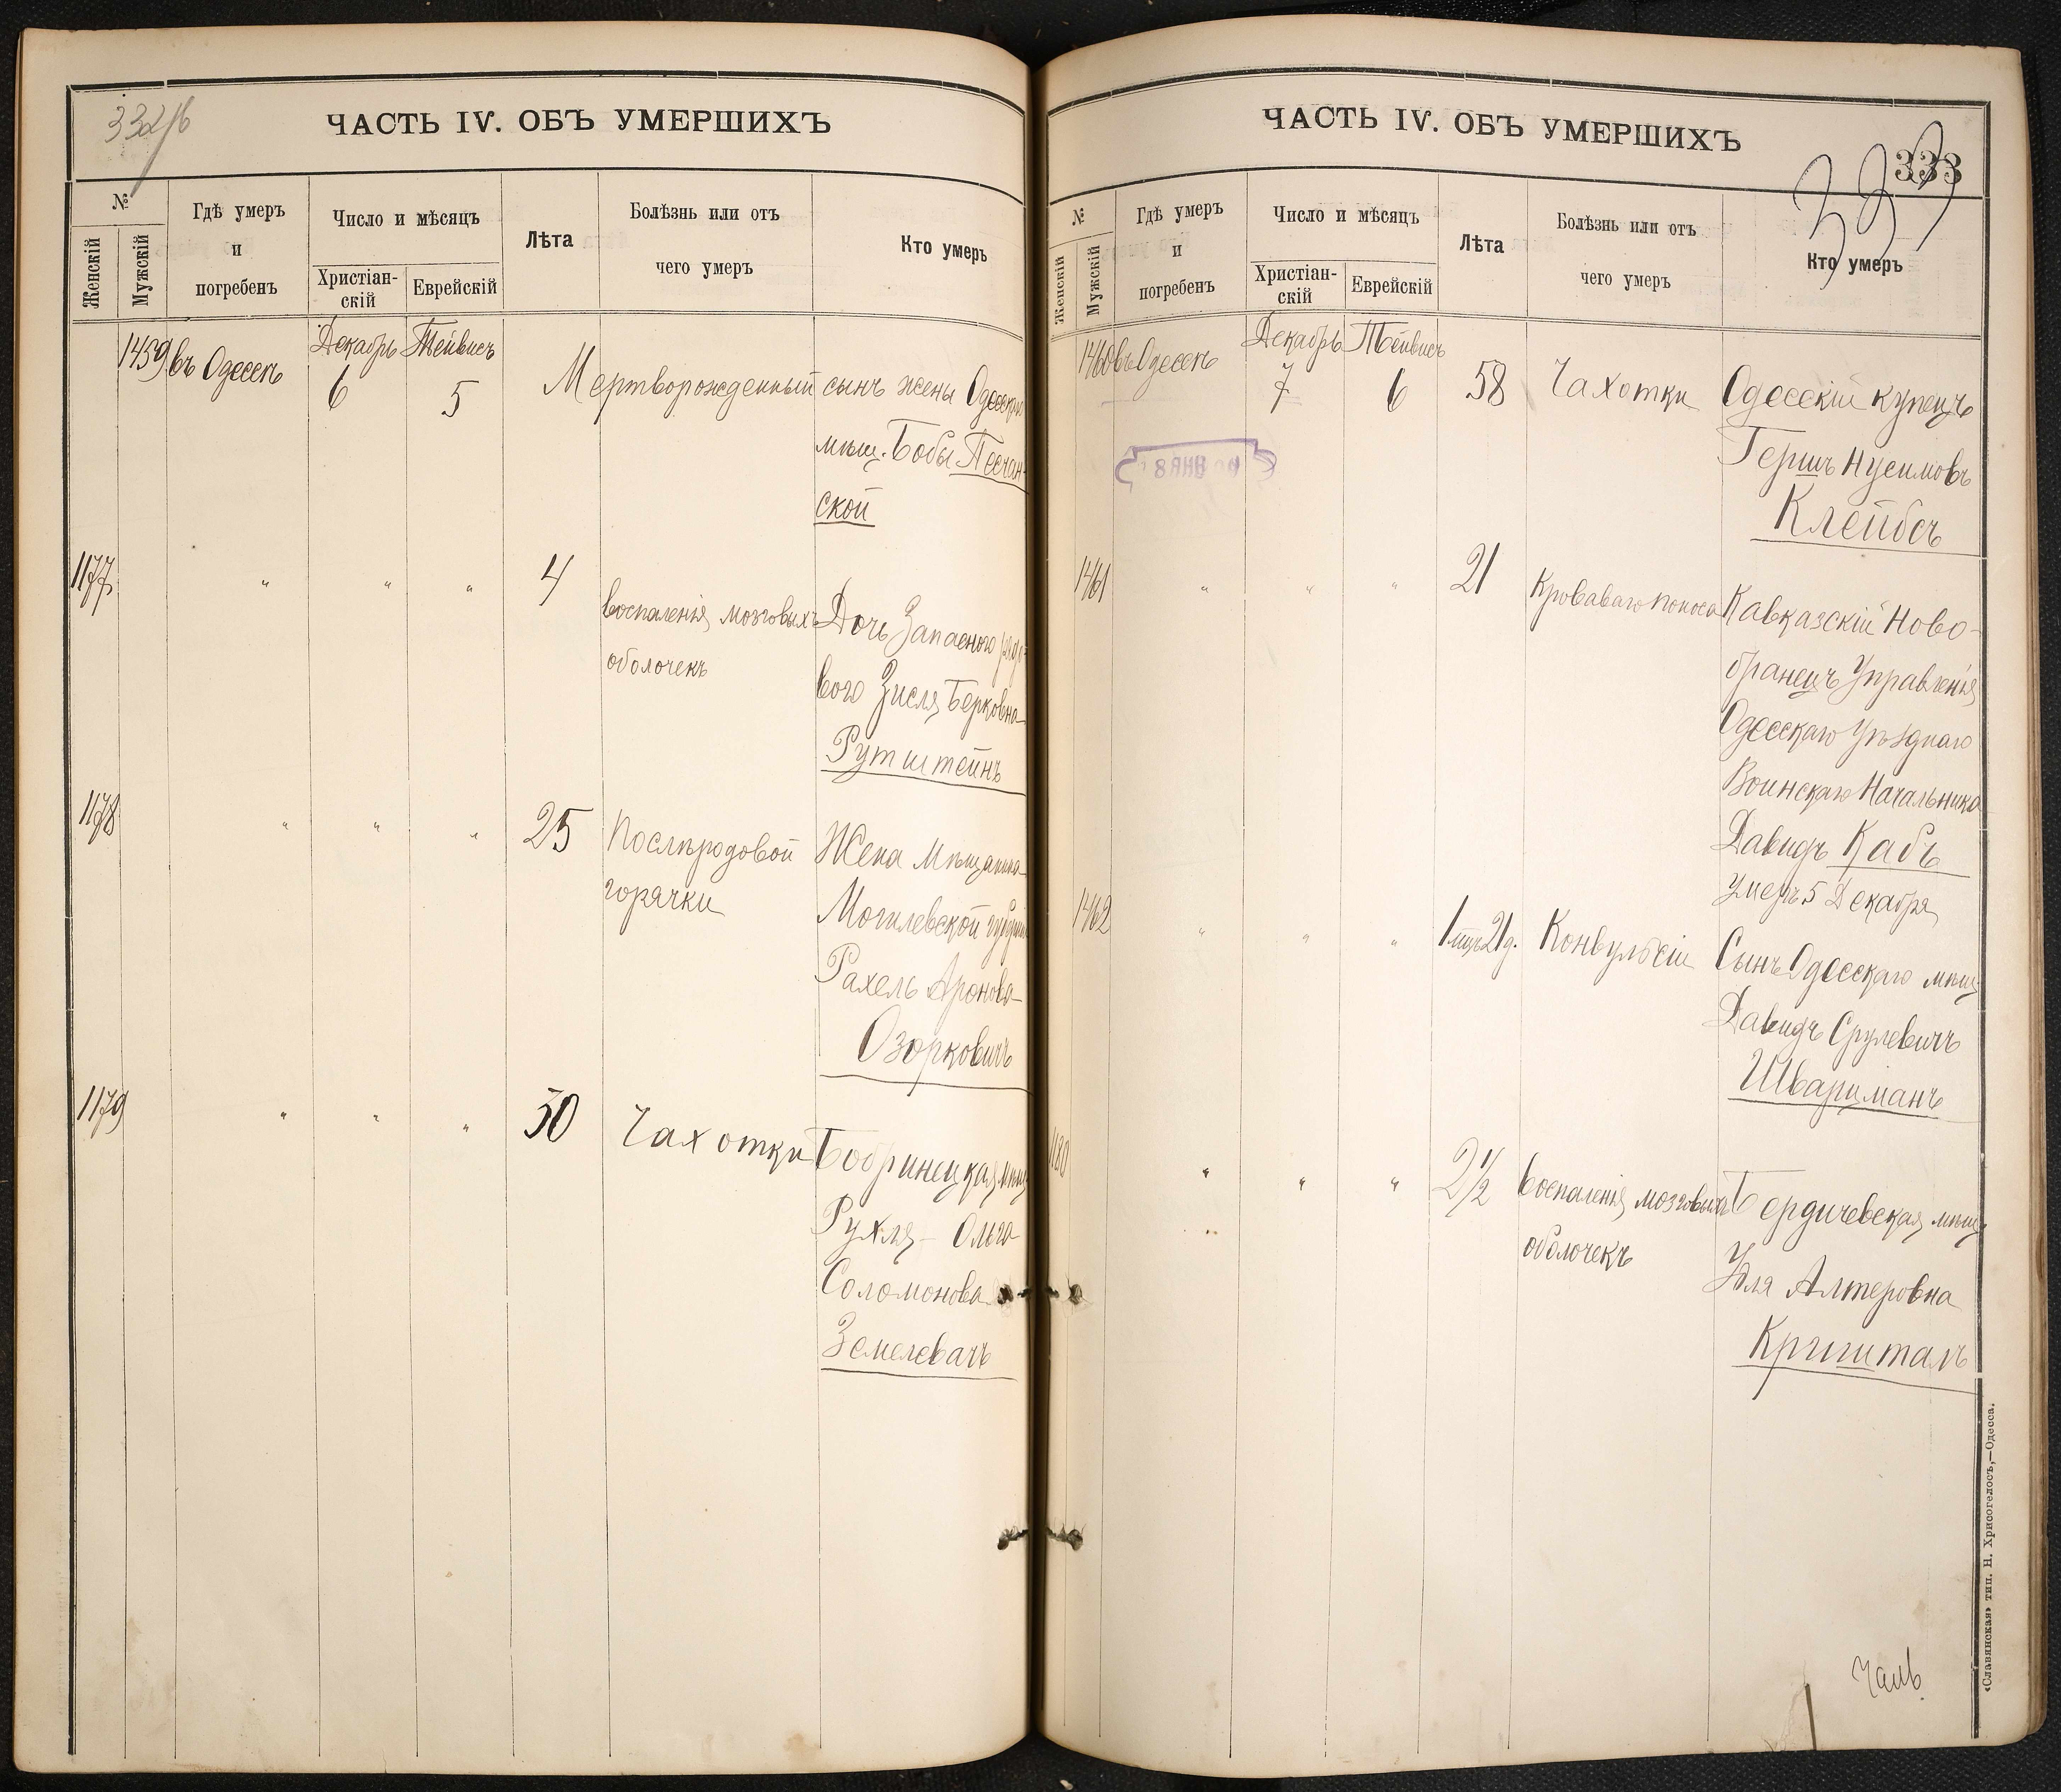 332/б
ЧАСТЬ IV. ОБЪ УМЕРШИХЪ
№
Женскій
Мужскій
Гдѣ умеръ
и
погребенъ
Число и мѣсяцъ
Христіан-
скій
Еврейскій
Лѣта
Болѣзнь или отъ
чего умеръ
Кто умеръ
1459 въ Одессѣ Декабрь 6 Тейвисъ 5 Мертворожденный сынъ жены Одесскаго
мѣщ. Бобы Песчан-
ской
1177 " " " 4 воспаленія мозговыхъ Дочь Запасного рядо-
оболочекъ вого Зисля Берковна
Рутштейнъ
1178 " " " 25 Послѣродовой Жена Мѣщанина
горячки Могилевской губерніи
Рахель Аронова
Озорковичъ
1179 " " " 30 Чахотки Бобринецкая мѣщ
Рухля - Ольга
Соломонова
Земелевачъ
ЧАСТЬ IV. ОБЪ УМЕРШИХЪ
333
333
№
Женскій
Мужскій
Гдѣ умеръ
и
погребенъ
Число и мѣсяцъ
Христіан-
скій
Еврейскій
Лѣта
Болѣзнь или отъ
чего умеръ
Кто умеръ
1460 въ Одессѣ Декабрь 7 Тейвисъ 6 58 Чахотки Одесскій купецъ
Гершъ Нусимовъ
Клейбсъ
1461 " " " 21 Кроваваго поноса Кавказскій Ново-
бранецъ Управленія
Одесскаго Уѣзднаго
Воинскаго Начальника
Давидъ Кабъ
умеръ 5 Декабря
1462 " " " 1 мѣц 21 д. Конвульсіи Сынъ Одесскаго мѣщ
Давидъ Срулевичъ
Шварцманъ
1180 " " " 2 1/2 воспаленія мозговыхъ Бердичевская мѣщ
оболочекъ Алтеровна
Кришталъ
«Славянская» тип. Н. Хрисогелосъ,—Одесса.